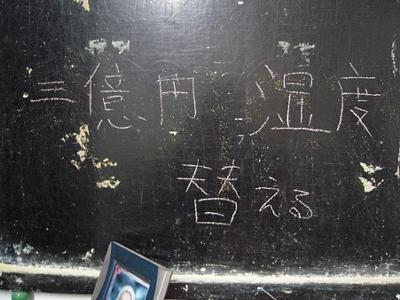 三億円 温度
替える